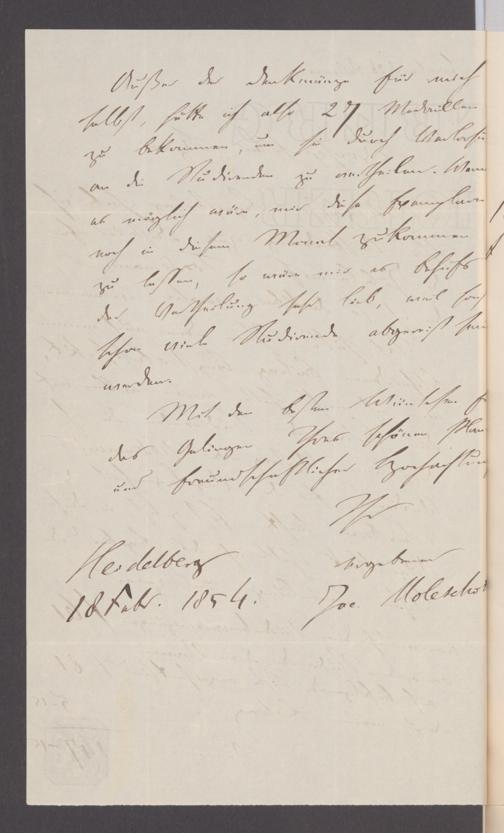 Außer der Denkmünze für mich
selbst, hätte ich also 27 Medaillen
zu bekommen, um sie durch
an die Studirenden zu vertheilen. Wenn
es möglich wäre, mir diese Exemplare
noch in diesem Monat zukommen
zu lassen, so wäre mir es behufs
der Vertheilung sehr lieb, weil sonst
schon viele Studirende abgereist sein
werden.
Mit den besten Wünschen
das Gelingen Ihres schönen Plan
und freundschaftlicher Hochachtung
Ihr
ergebener
Heidelberg
18 Febr. 1854. Jac. Moleschot